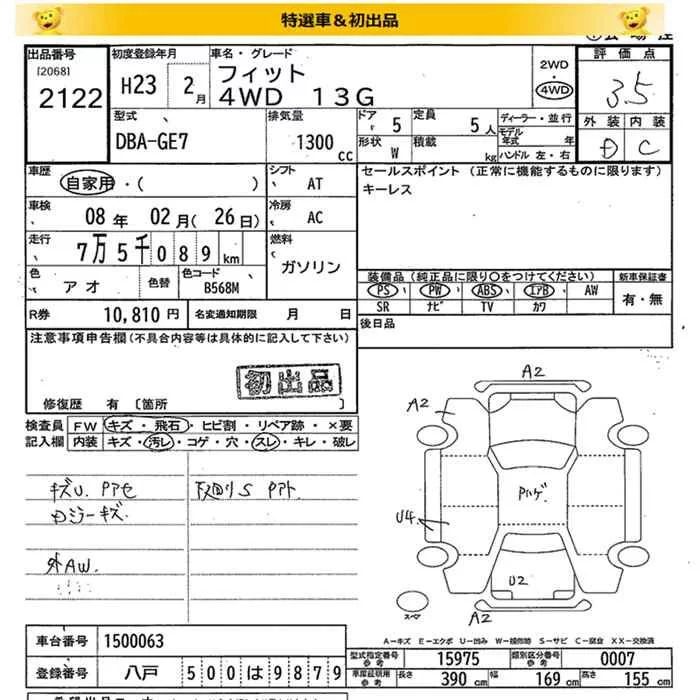 特選車&初出品
出品番号 初度登録年月 車名・グレード 2WD・4WD 評価点
[2068] 2122 H23 2月 フィット 3.5
4WD 13G
外装 内装
D C
型式 排気量 ドア 5 定員 5人 ディーラー・並行
DBA-GE7 1300cc 形状 W 積載 kg モデル年式 年
ハンドル 左・右
車歴 シフト セールスポイント (正常に機能するものに限ります)
自家用・( ) AT キーレス
車検 冷房
08年 02月(26日) AC
走行 燃料
7万5千089km ガソリン
色 色替 色コード 装備品(純正品に限り○をつけてください) 新車保証書
アオ B568M PS PW ABS エアB AW 有・無
SR ナビ TV カワ
R券 10,810円 名変通知期限 月 日 後日品
注意事項申告欄(不具合内容等は具体的に記入して下さい)
初出品
修復歴 有 [箇所 ]
検査員記入欄 FW キズ・飛石・ヒビ割・リペア跡・×要
内装 キズ・汚レ・コゲ・穴・スレ・キレ・破レ
キズU. Pアセ 下回りS Pアト
Dミラーキズ.
外AW.
A2
A2
Pハゲ
U4
U2
スペア
A2
A-キズ E-エクボ U-凹み W-補修跡 S-サビ C-腐食 XX-交換済
車台番号 1500063
型式指定番号 参考 15975 類別区分番号 参考 0007
登録番号 八戸 500は9879
車庫証明用 参考 長さ 390cm 幅 169cm 高さ 155cm